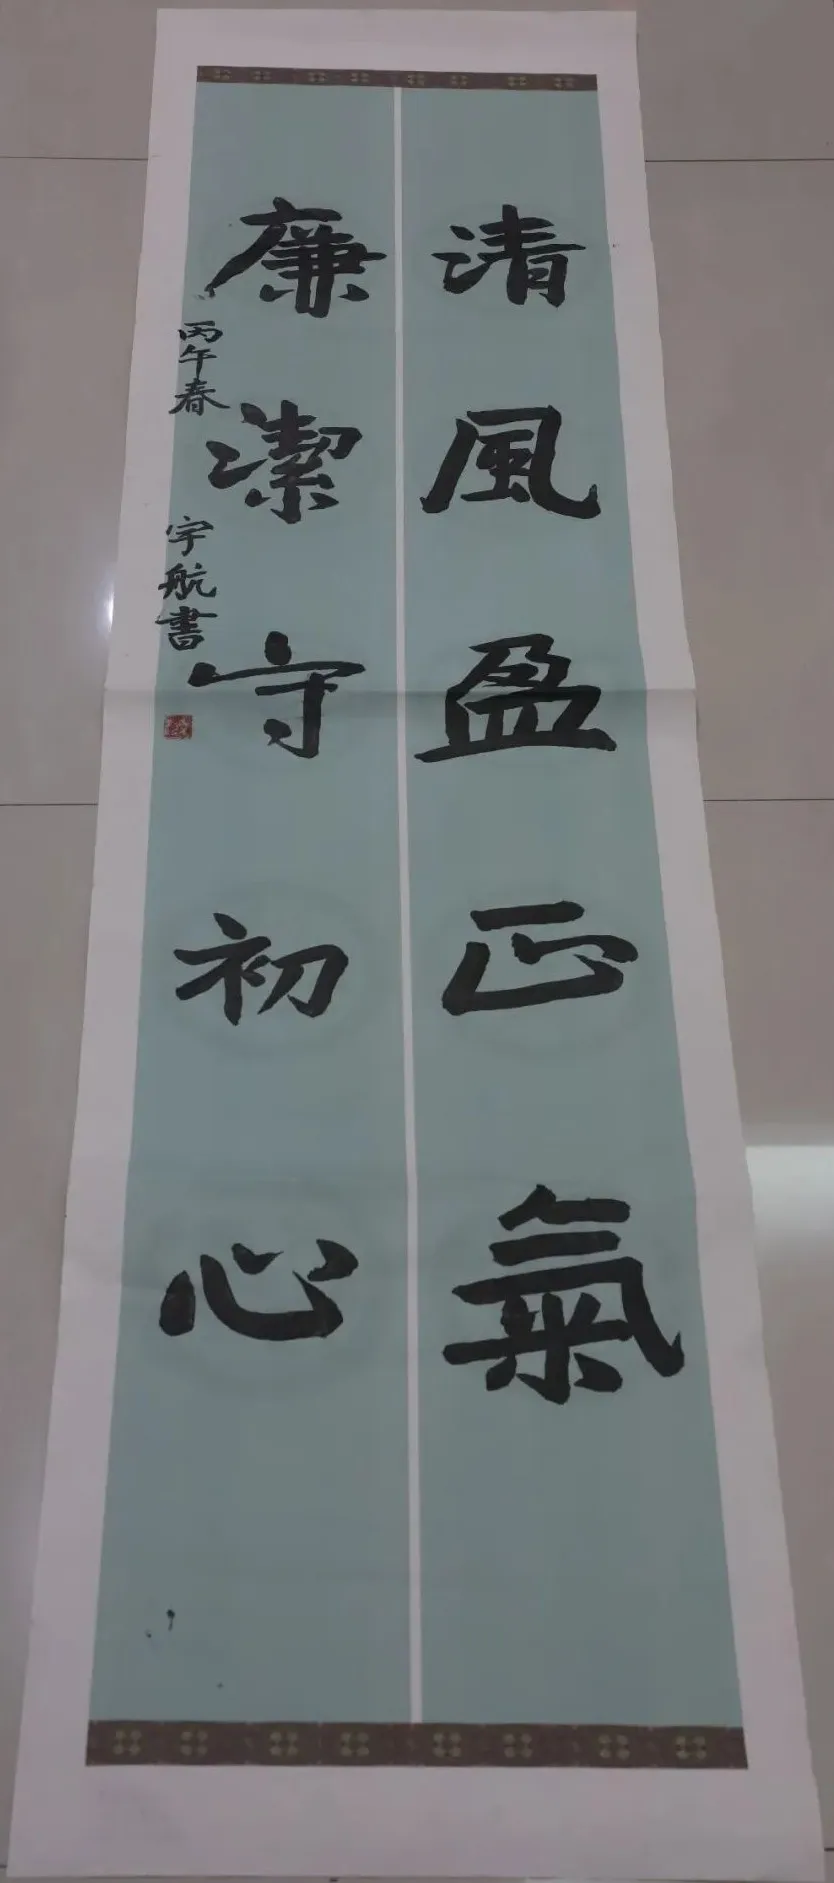 清風盈正氣
廉潔守初心
丙午春
宇航書